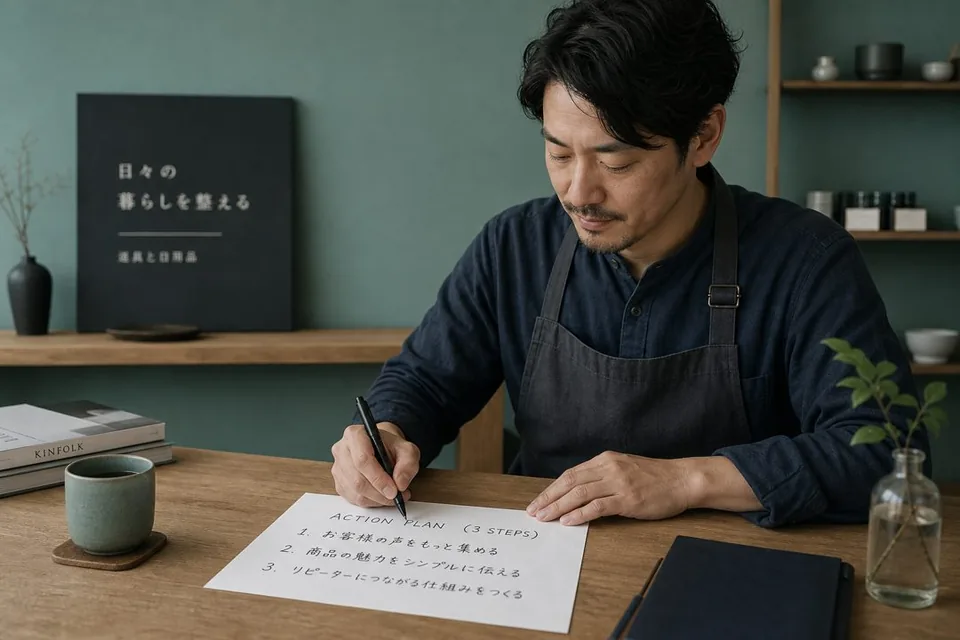 日々の
暮らしを整える
道具と日用品
KINFOLK
ACTION PLAN (3 STEPS)
1. お客様の声をもっと集める
2. 商品の魅力をシンプルに伝える
3. リピーターにつながる仕組みをつくる